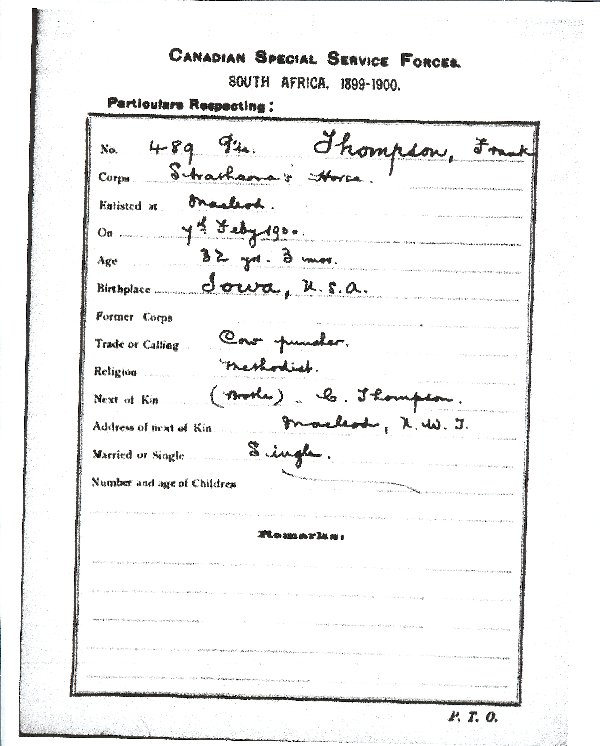 CANADIAN SPECIAL SERVICE FORCES.
SOUTH AFRICA, 1899-1900.
Particulars Respecting:
No. 489 Pte. Thompson, Frank
Corps Strathcona's Horse.
Enlisted at Macleod.
On 7th Feby 1900.
Age 32 yrs. 3 mos.
Birthplace Iowa, U.S.A.
Former Corps
Trade or Calling Cow puncher.
Religion Methodist.
Next of Kin (Brother). C. Thompson.
Address of next of Kin Macleod, N.W.T.
Married or Single Single.
Number and age of Children
Remarks:
P. T. O.